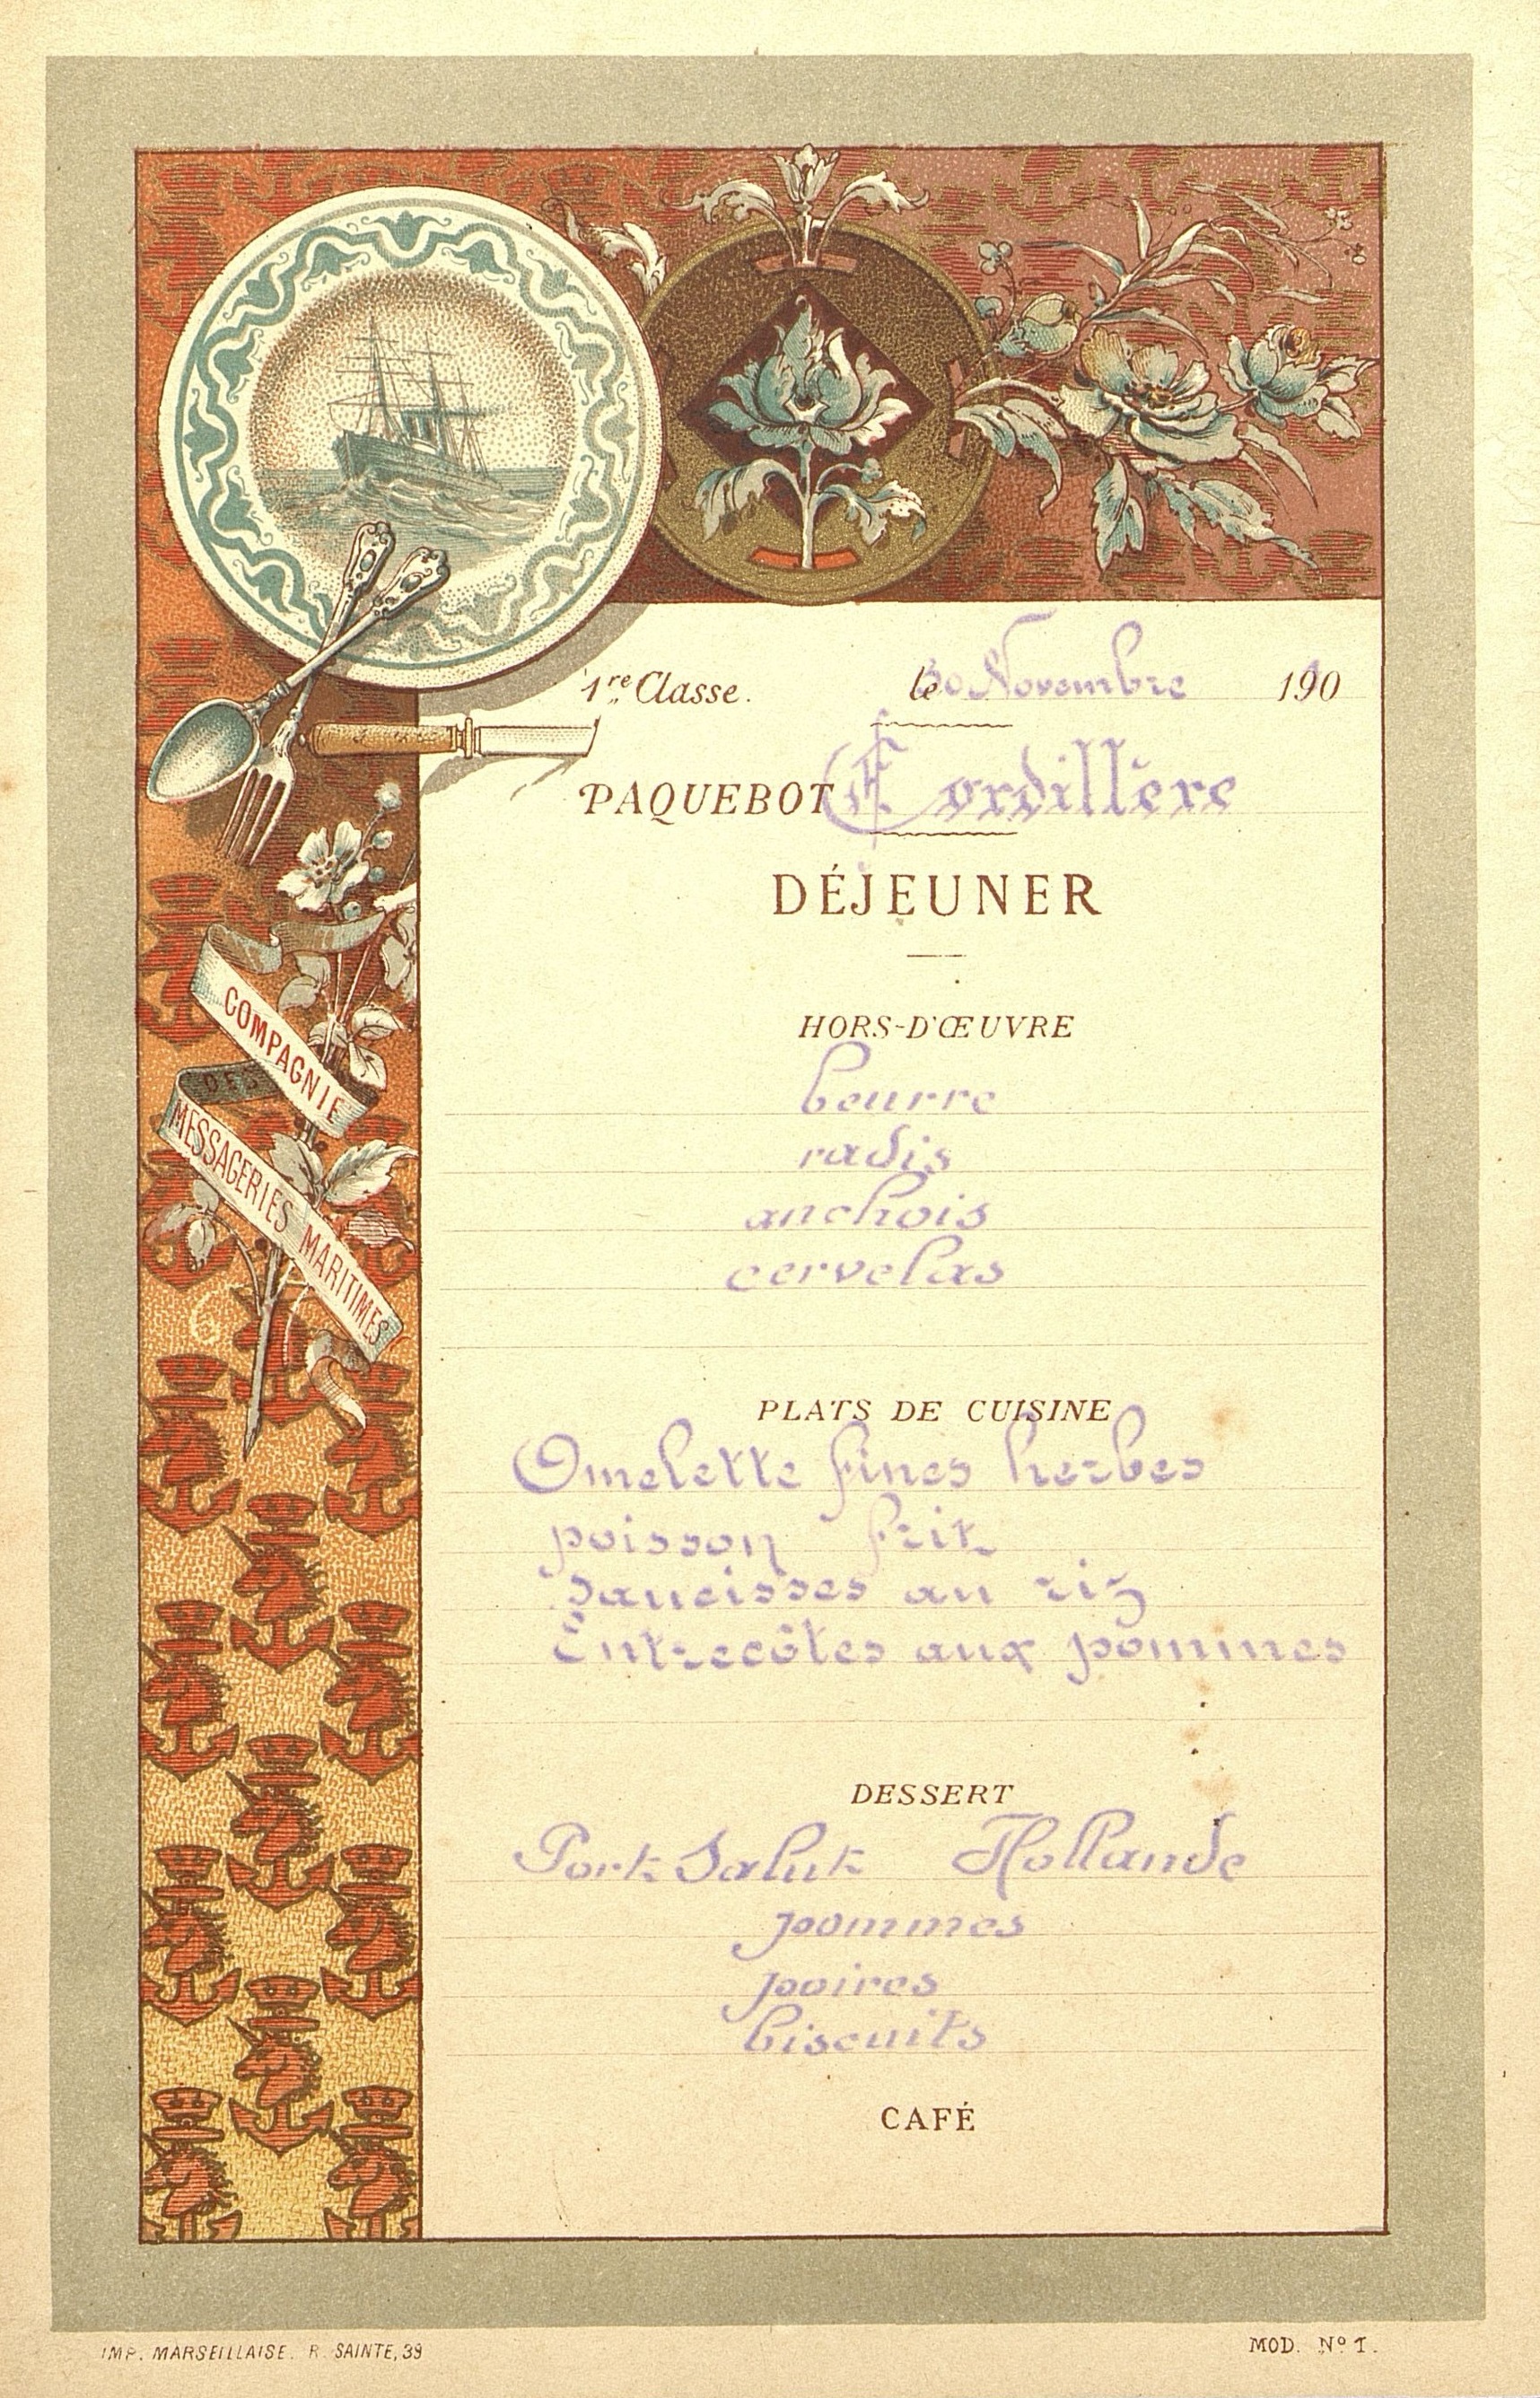 1re Classe. le 30 Novembre 190
PAQUEBOT Cordillère
DÉJEUNER
HORS-D'ŒUVRE
beurre
radis
anchois
cervelas
PLATS DE CUISINE
Omelette fines herbes
poisson frit
Saucisses au riz
Entrecôtes aux pommes
DESSERT
Port Salut Hollande
pommes
poires
biscuits
CAFÉ
COMPAGNIE
DES
MESSAGERIES MARITIMES
IMP. MARSEILLAISE. R. SAINTE, 39
MOD. Nº 1.